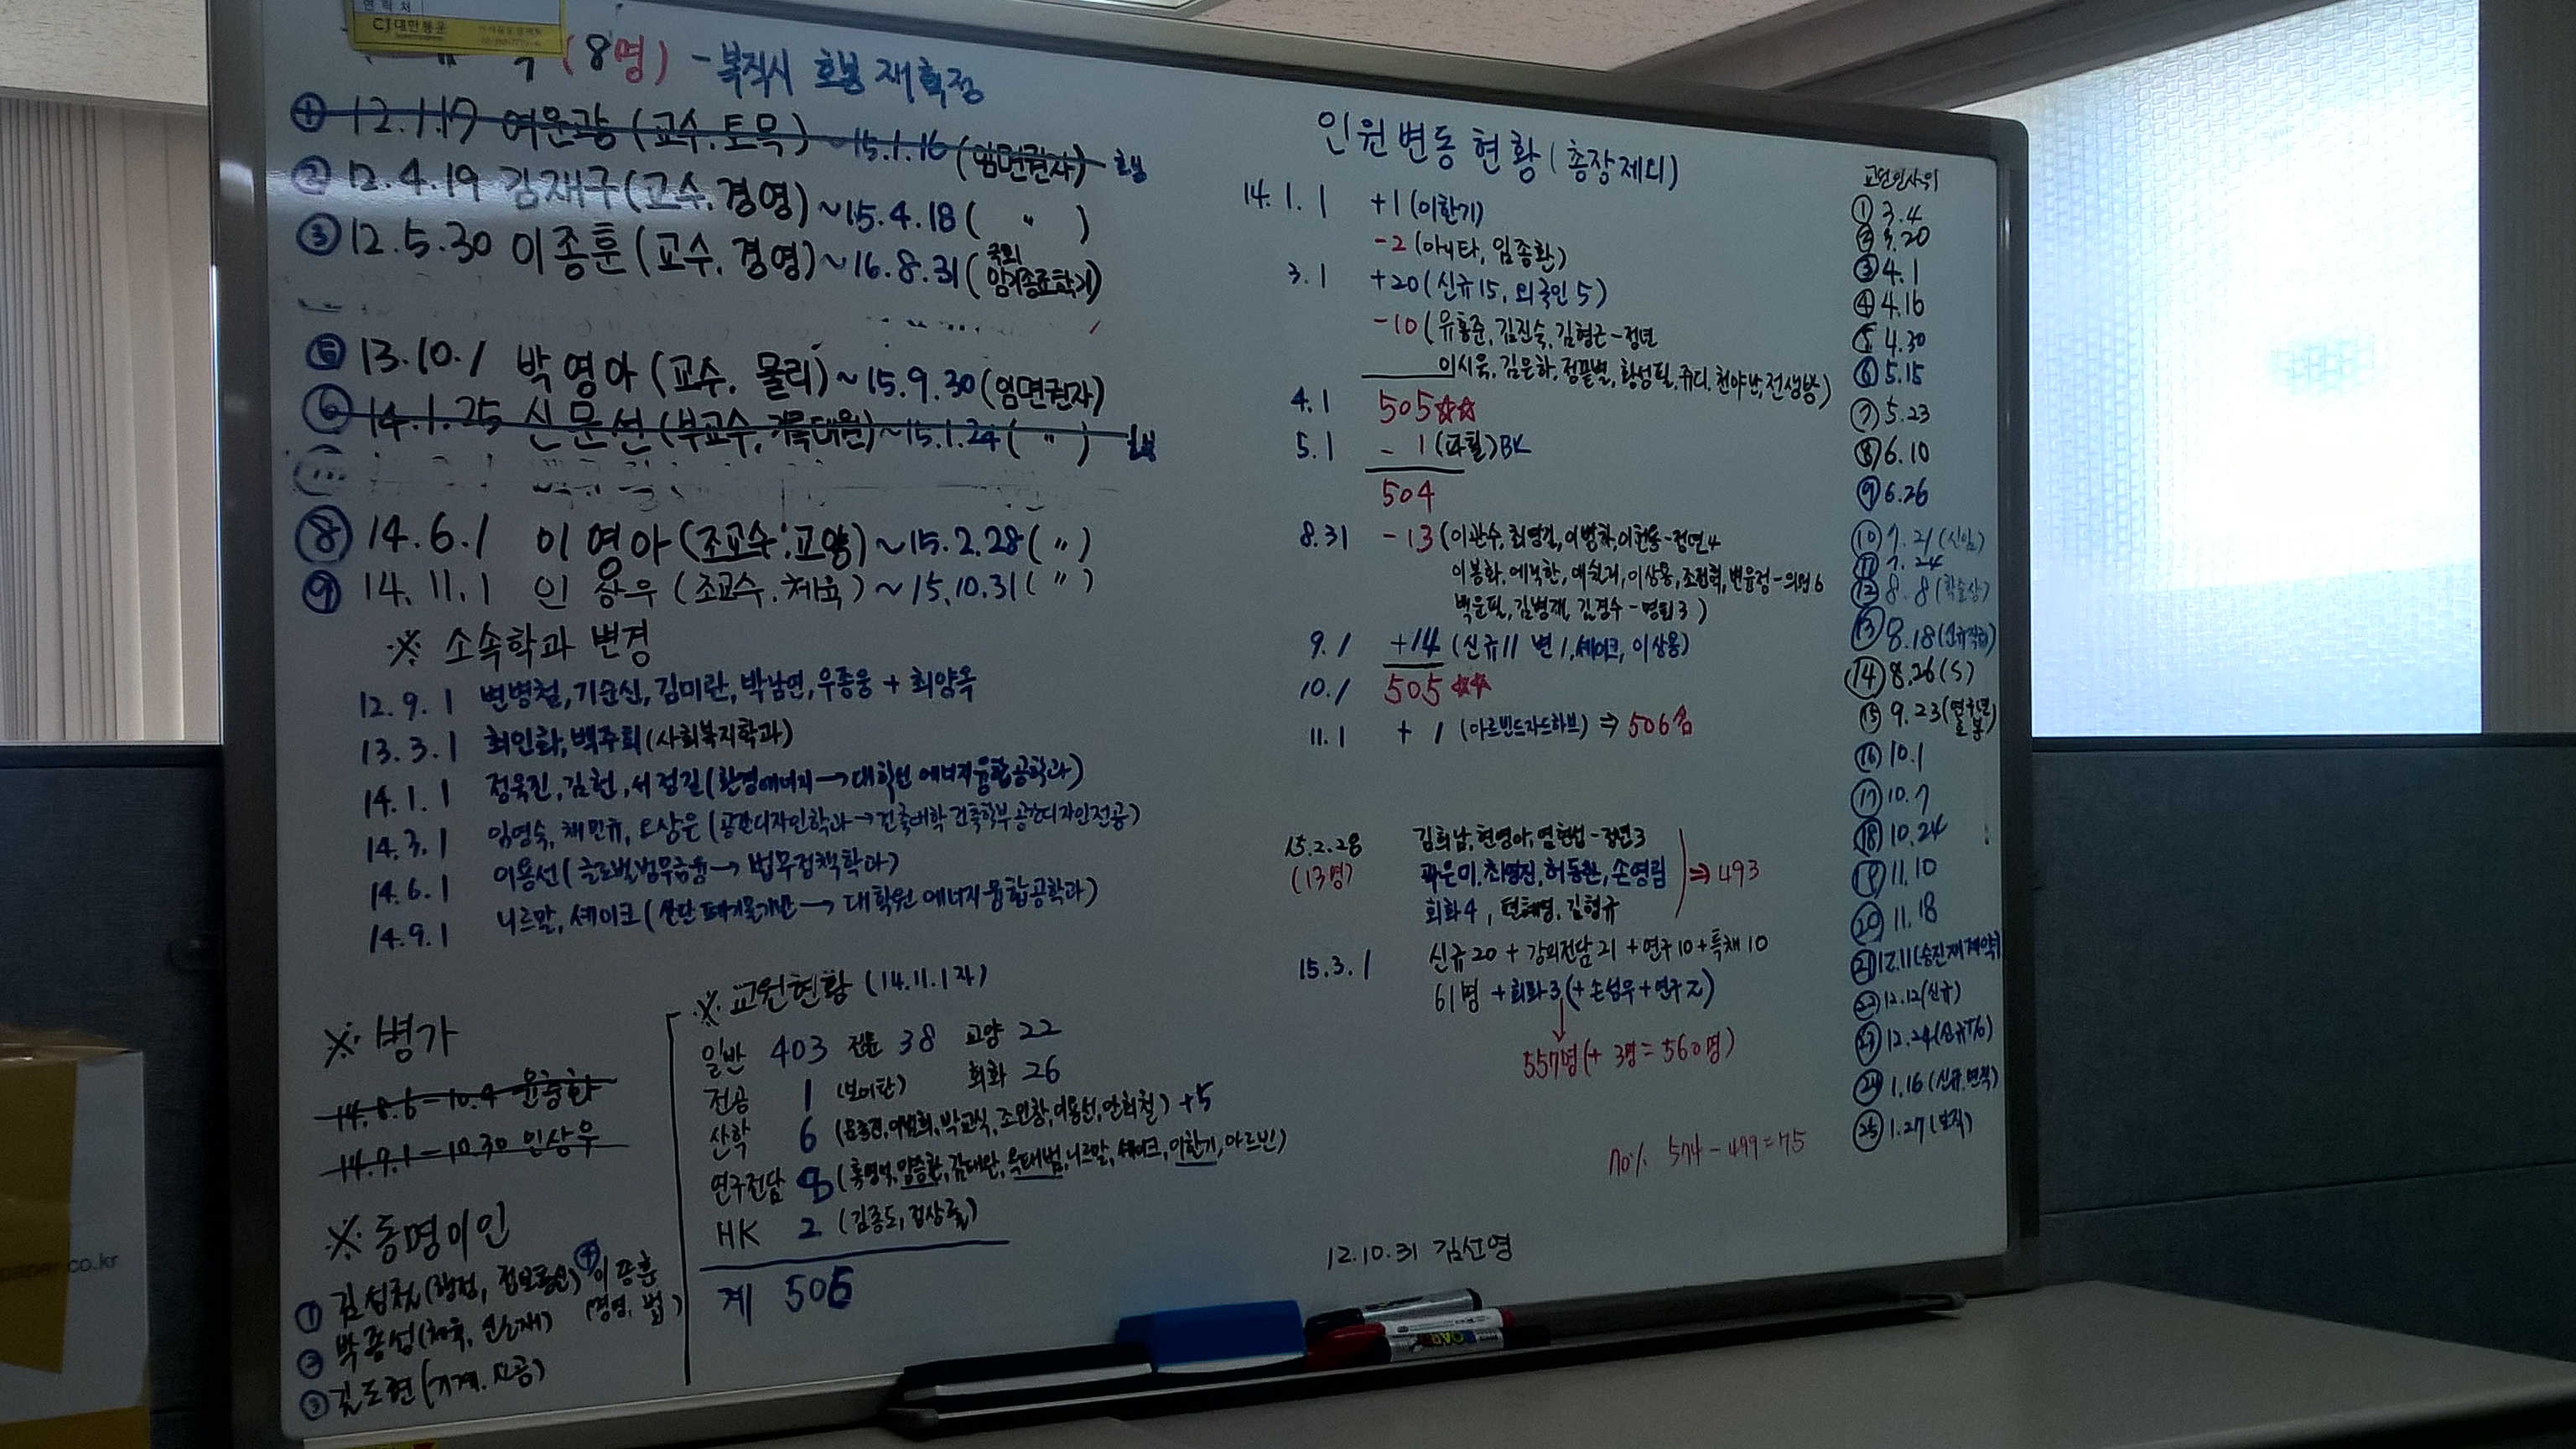 연락처
CJ대한통운
(8명) - 복직시 호봉 재획정
① 12.1.17 여운광 (교수.토목) ~15.1.16 (임면권자)
② 12.4.19 김재구(교수.경영) ~15.4.18 ( " )
③ 12.5.30 이종훈 (교수, 경영) ~16.8.31 (국회 임기종료학기)
⑤ 13.10.1 박영아 (교수, 물리) ~15.9.30 (임면권자)
⑥ 14.1.25 신문선 (부교수, 기록대원) ~15.1.24 ( " )
⑧ 14.6.1 이영아 (조교수.교양) ~15.2.28 ( " )
⑨ 14.11.1 인상우 (조교수.체육) ~15.10.31 ( " )
※ 소속학과 변경
12.9.1 변병철, 기순신, 김미란, 박남연, 우종웅 + 최양옥
13.3.1 최인화, 백주희 (사회복지학과)
14.1.1 정욱진, 김헌, 서정길 (환경에너지 → 대학원 에너지융합공학과)
14.3.1 임영숙, 채민규, 오상은 (공간디자인학과 → 건축대학 건축학부 공간디자인전공)
14.6.1 이용선 (글로벌법무금융 → 법무정책학과)
14.9.1 니르말, 셰이크 (산단 폐기물기반 → 대학원 에너지융합공학과)
※ 병가
14.8.6 - 10.4 윤충화
14.9.1 - 10.30 인상우
※ 동명이인
① 김성철 (행정, 정보통신) ④ 이종훈 (경영, 법)
② 박종성 (체육, 신소재)
③ 김도현 (기계. 산공)
※ 교원현황 (14.11.1자)
일반 403 전문 38 교양 22
전공 1 회화 26
산학 6 +5
연구전담 8
HK 2
계 506
인원변동 현황 (총장제외)
14.1.1 +1 (이한기)
-2 (아시타, 임종환)
3.1 +20 (신규15, 외국인 5)
-10 (유홍준, 김진숙, 김형근 - 정년
이시욱, 김은하, 정끝별, 황성필, 쥬디, 천야난, 전생방)
4.1 505☆☆
5.1 - 1 (파힐) BK
504
8.31 -13 (이관수, 최명길, 이병학, 이헌웅 - 정년4
백운필, 김병재, 김경수 - 명퇴3)
9.1 +14 (신규11 변1, 셰이크, 이상용)
10.1 505 ☆☆
11.1 + 1 (아르빈드자드하브) ⇒ 506名
15.2.28 김희남, 현영아, 염현섭 - 정년3
(13명) 곽은미, 최명진, 허동환, 손영림 ⇒ 493
회화4, 전혜영, 김형규
15.3.1 신규20 + 강의전담21 + 연구10 + 특채10
61명 + 회화3 (+ 손섬우 + 연구7)
557명 (+ 3명 = 560명)
70% 574 - 499 = 75
12.10.31 김선영
교원인사위
① 3.4
② 3.20
③ 4.1
④ 4.16
⑤ 4.30
⑥ 5.15
⑦ 5.23
⑧ 6.10
⑨ 6.26
⑩ 7.21 (신임)
⑪ 7.24
⑫ 8.8 (학술상)
⑬ 8.18
⑭ 8.26(S)
⑮ 9.23
⑯ 10.1
⑰ 10.7
⑱ 10.24
⑲ 11.10
⑳ 11.18
㉑ 12.11 (승진재계약)
㉒ 12.12 (신규)
㉓ 12.24
㉔ 1.16 (신규.면직)
㉕ 1.27
paper.co.kr